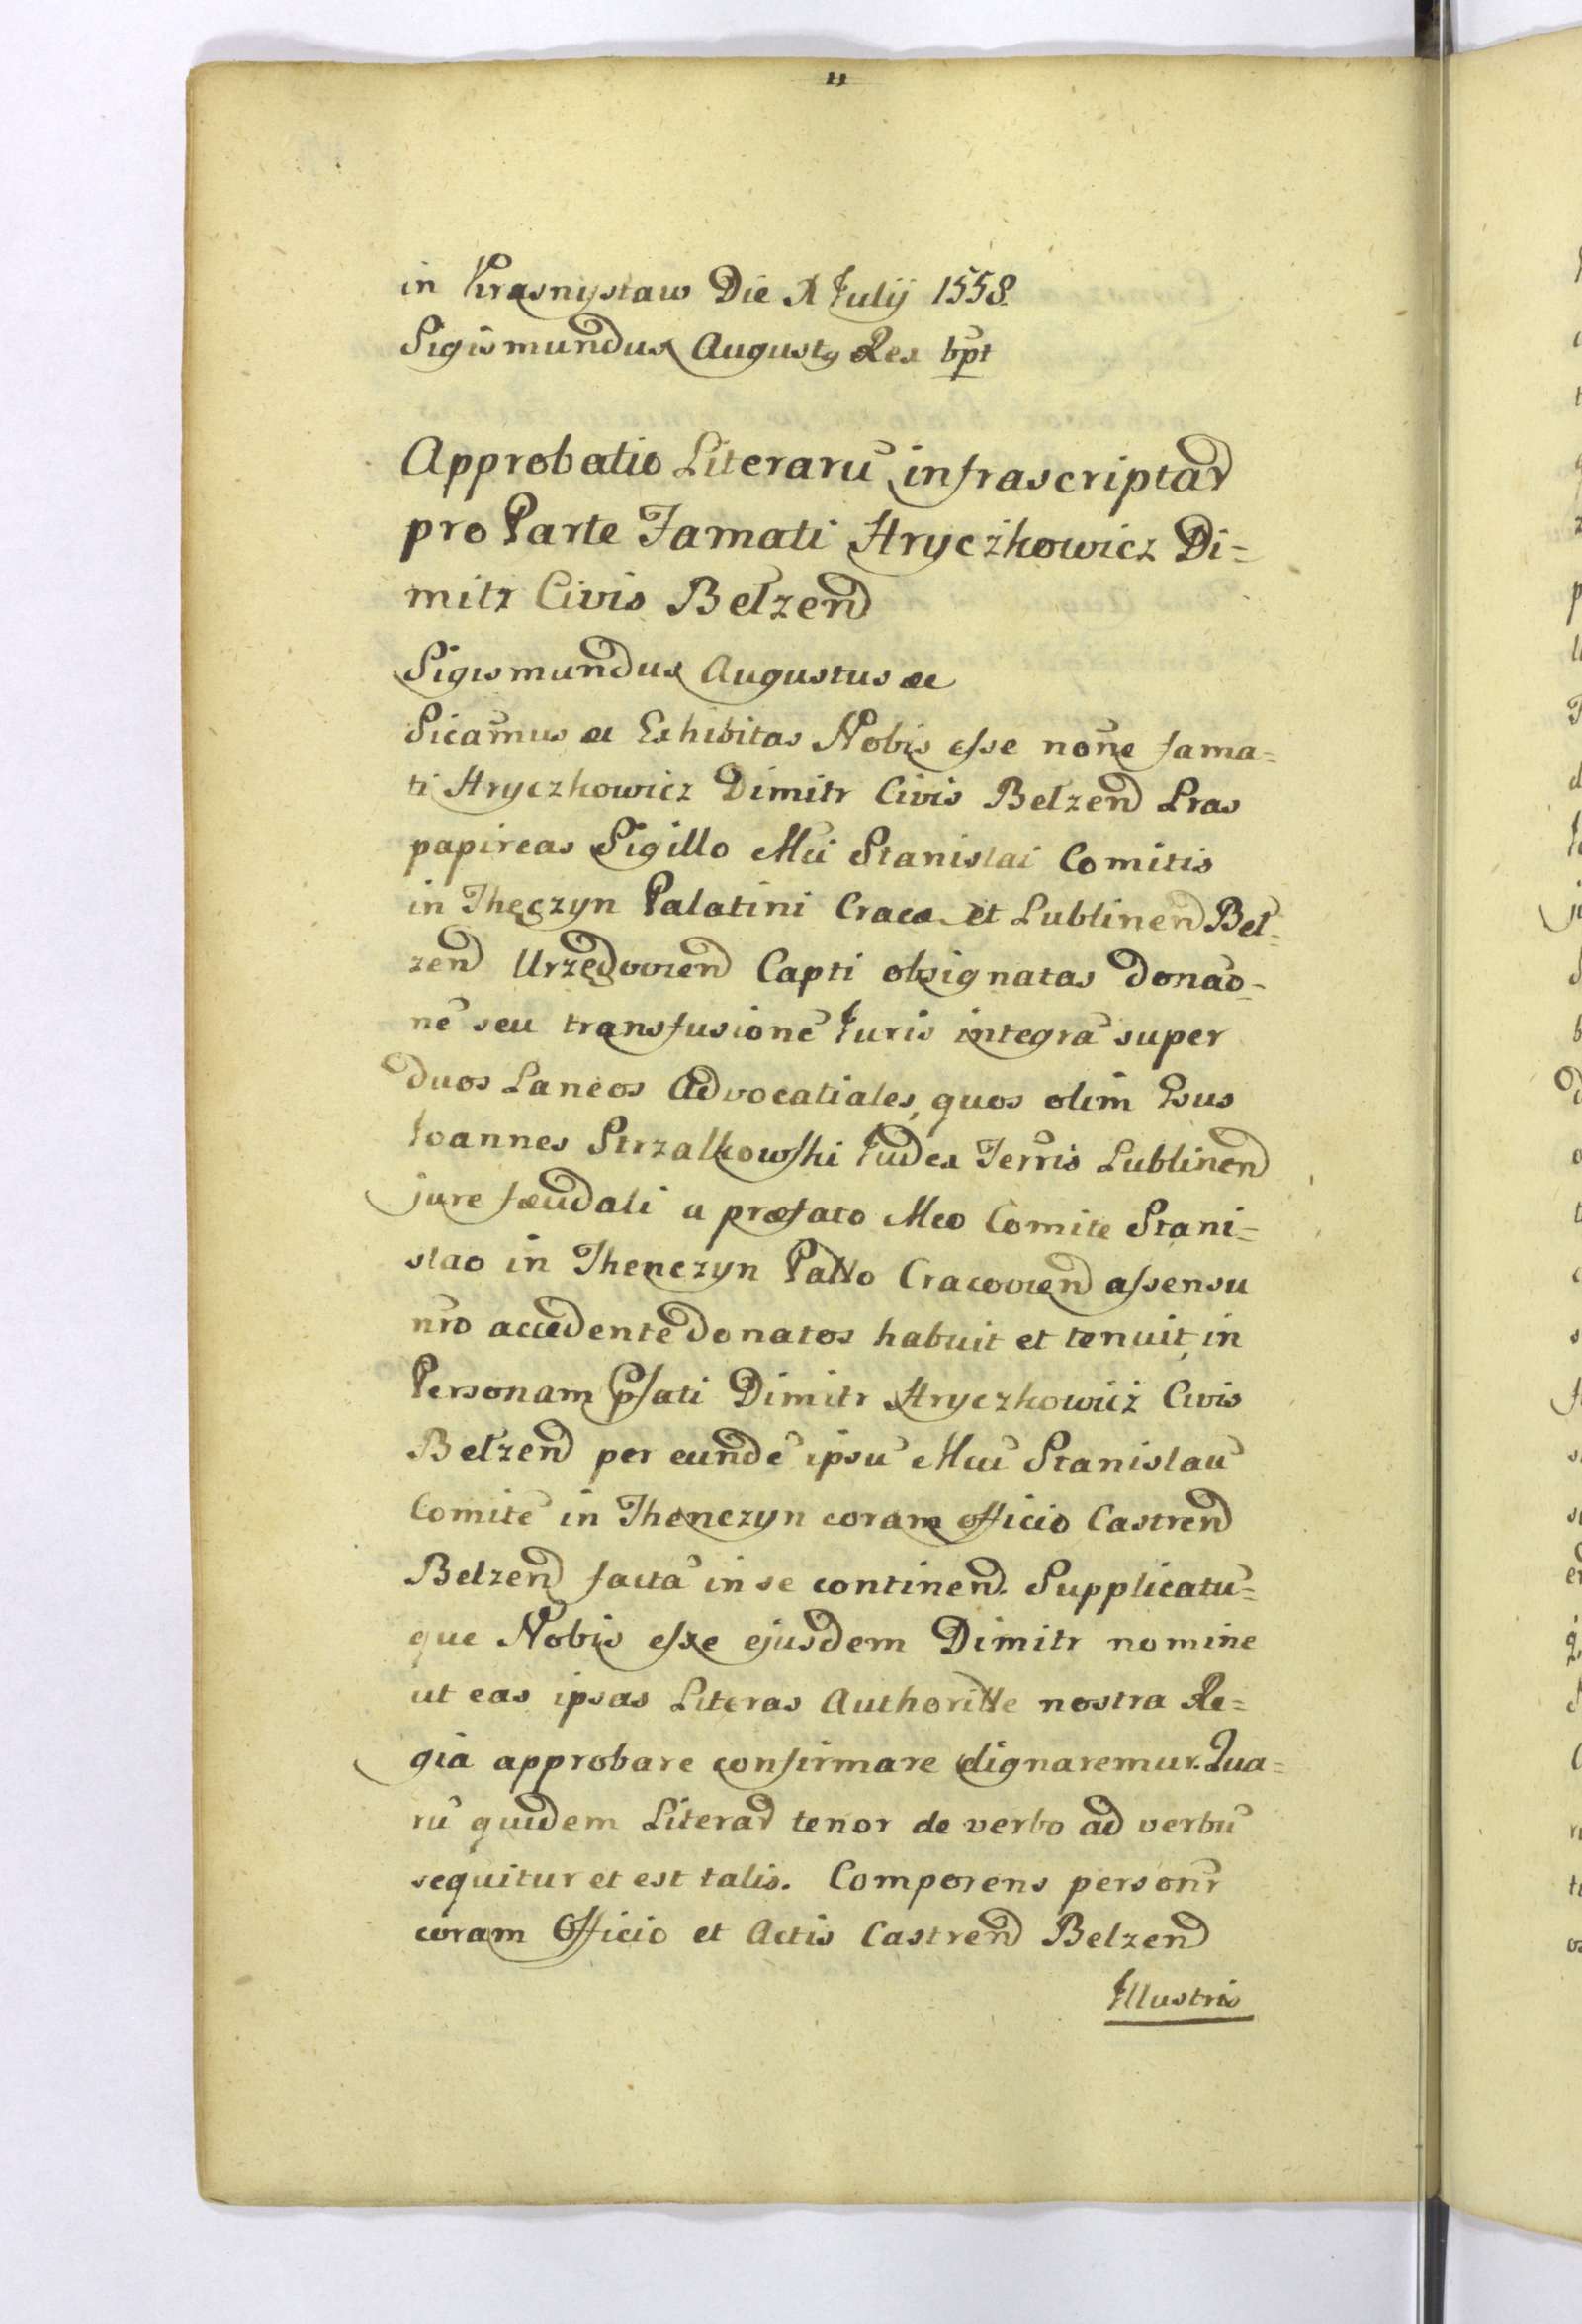 11
in Krasnystaw Die X Julij 1558.
Sigismundus Augustus Rex spt
Approbatio Literarũ infrascriptar
pro Parte Famati Hryczkowicz Di=
mitr Civis Belzeñ
Sigismundus Augustus &c
Sicamus &c Exhibitas Nobis esse noñe fama=
ti Hryczkowicz Dimitr Civis Belzeñ Lras
papireas Sigillo Mci Stanislai Comitis
in Theczyn Palatini Craco et Lublineñ Bel=
zeñ Urzędovieñ Capti obsignatas donao=
nẽ seu transfusionẽ Juris integrã super
duos Laneos Advocatiales, quos olim Gsus
Joannes Strzalkowski Judex Terris Lublineñ
jure fæudali a præfato Mco Comite Stani=
slao in Thenczyn Patto Cracovieñ assensu
nro accedente donatos habuit et tenuit, in
Personam pfati Dimitr Hryczkowicz Civis
Belzeñ per eundẽ ipsũ Mcũ Stanislaũ
Comitẽ in Thenczyn coram officio Castreñ
Belzeñ factã in se contineñ. Supplicatũ=
que Nobis esse ejusdem Dimitr nomine
ut eas ipsas Literas Authoritte nostra Re=
gia approbare confirmare dignaremur. Qua=
rũ quidem Literar tenor de verbo ad verbũ
sequitur et est talis. Comporens personr
coram Officio et Actis Castreñ Belzeñ
Illustris